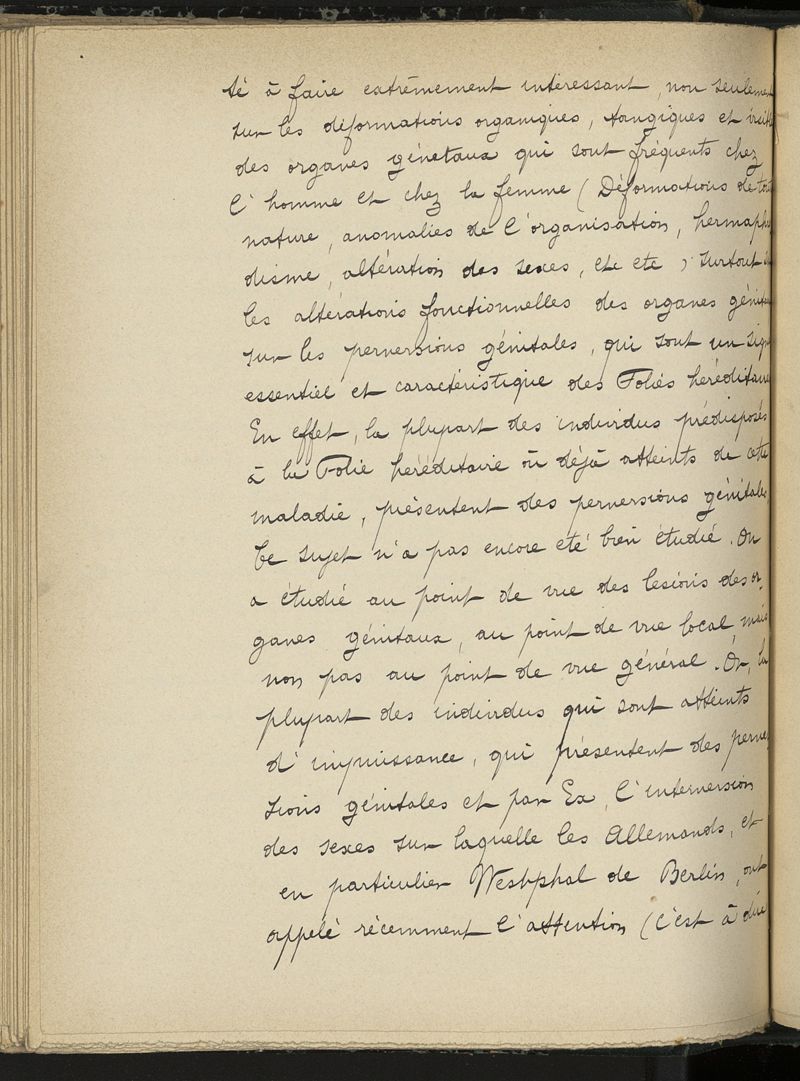 té à faire extrêmement intéressant, non seulemen
sur les déformations organiques, tangiques et visib
des organes génetaux qui sont fréquents chez
l'homme et chez la femme (Déformations de tout
nature, anomalies de l'organisation, hermaphr
disme, altération des sexes, etc etc) surtout
les altérations fonctionnelles des organes génitau
sur les perversions génitales, qui sont un sign
essentiel et caractéristique des Folies héréditaire
En effet, la plupart des individus prédisposés
à la Folie heréditaire où déjà atteints de cette
maladie, présentent des perversions génitales
Ce sujet n'a pas encore eté bien étudié. On
a étudié au point de vue des lesions des or-
ganes génitaux, au point de vue local mais
non pas au point de vue général. Or, la
plupart des individus qui sont atteints
d'impuissance, qui présentent des perver
sions génitales et par Ex, l'interversion
des sexes sur laquelle les Allemands, et
en particulier Westphal de Berlin, ont
appelé récemment l'attention (c'est à dire